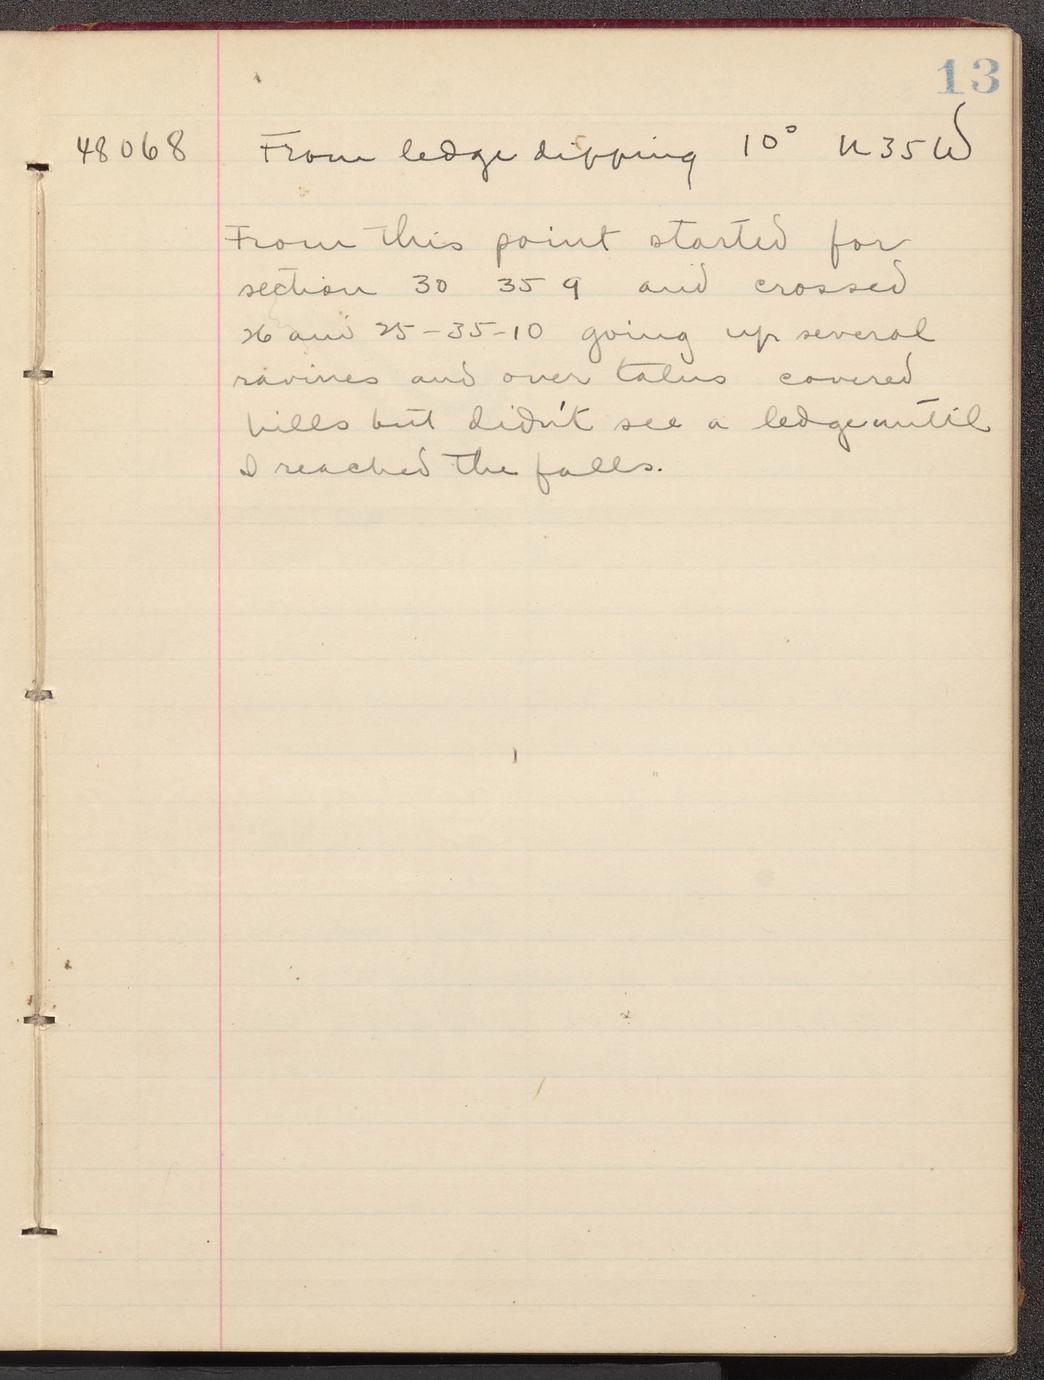 13
48068 From ledge dipping 10° N 35 W
From this point started for
section 30 35 9 and crossed
26 and 25-35-10 going up several
ravines and over talus covered
hills but didn't see a ledge until
I reached the falls.